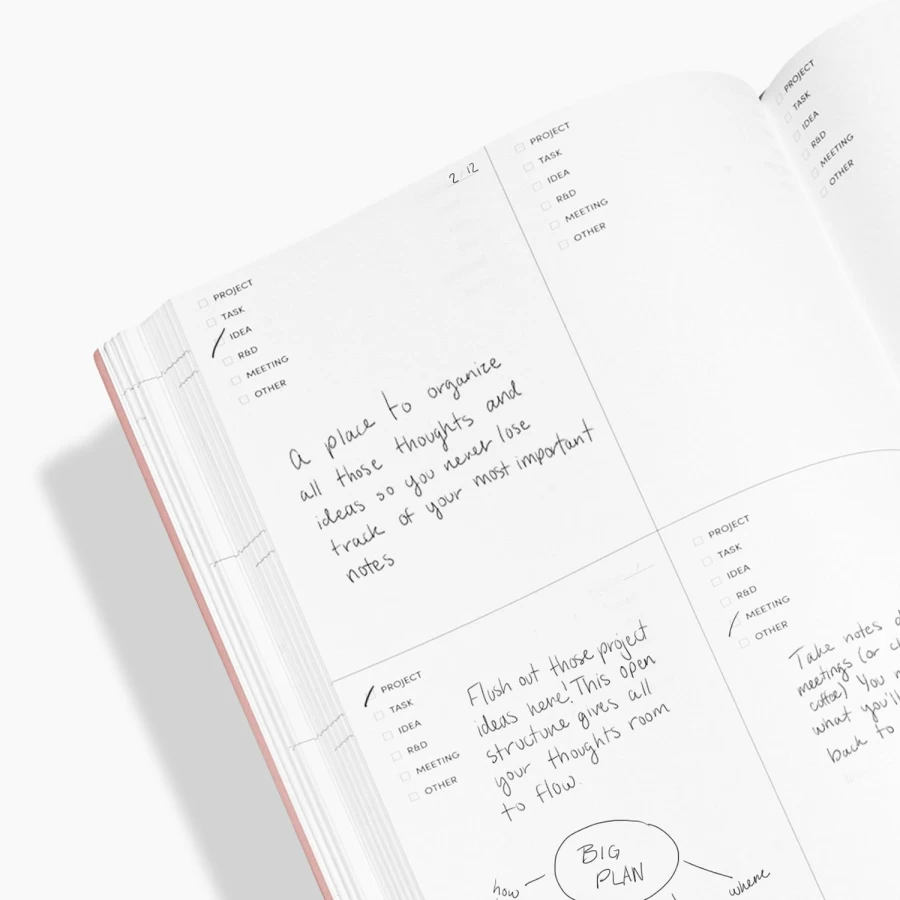 2 12
PROJECT
TASK
IDEA
R&D
MEETING
OTHER
A place to organize
all those thoughts and
ideas so you never lose
track of your most important
notes
PROJECT
TASK
IDEA
R&D
MEETING
OTHER
PROJECT
TASK
IDEA
R&D
MEETING
OTHER
PROJECT
TASK
IDEA
R&D
MEETING
OTHER
Flush out those project
ideas here! This open
structure gives all
your thoughts room
to flow.
BIG
PLAN
how
where
PROJECT
TASK
IDEA
R&D
MEETING
OTHER
Take notes
meetings (or
coffee) You
what you'll
back to